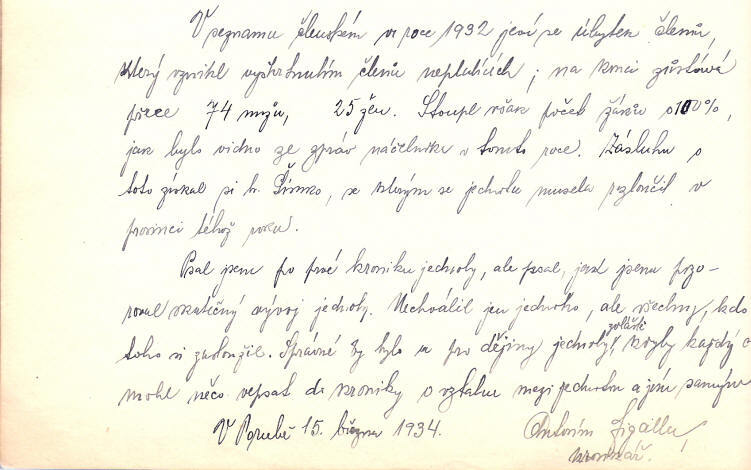 V seznamu členském v roce 1932 jeví se úbytek členů,
který vznikl vyškrtnutím členů neplatících; na konci zůstává
přece 74 mužů, 25 žen. Stoupl však počet žáků o 100%,
jak bylo vidno ze zpráv náčelníka v tomto roce. Zásluhu o
toto získal si br. Šimko, se kterým se jednota musela rozloučit v
prosinci téhož roku.
Psal jsem po prvé kroniku jednoty, ale psal, jak jsem pozo-
roval skutečný vývoj jednoty. Nechválil jen jednoho, ale všechny, kdo
toho si zasloužil. Správné by bylo a pro dějiny jednoty zvláště, kdyby každý
mohl něco vepsat do kroniky o vztahu mezi jednotou a jím samým
V Porubě 15. března 1934. Antonín
kronikář.